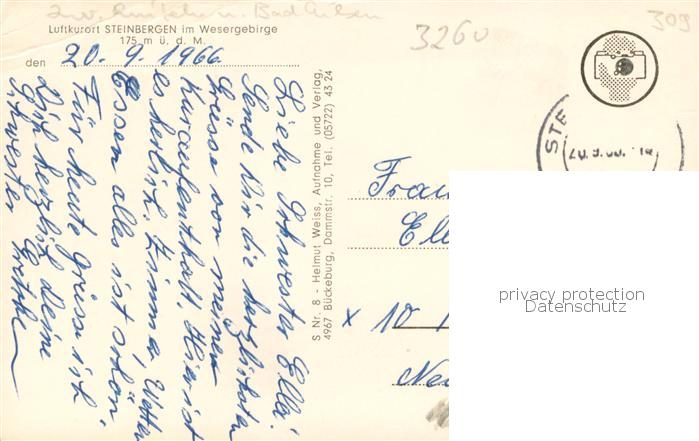 zw. u. Bad Eilsen
309
3260
Luftkurort STEINBERGEN im Wesergebirge
175 m ü. d. M.
den 20. 9. 1966
Liebe Schwester Ella!
Sende Dir die herzlichsten
Grüsse von meinem
Kuraufenthalt. Hier ist
es herlich. Zimmer, Wetter
Essen alles ist schön
Für heute grüsse ich
Dich herzlich deine
Schwester
S Nr. 8 - Helmut Weiss, Aufnahme und Verlag,
4967 Bückeburg, Dammstr. 10, Tel. (05722) 43 24
STE
20.9.66
Frau
Ell
x 10 1
Ne
privacy protection
Datenschutz